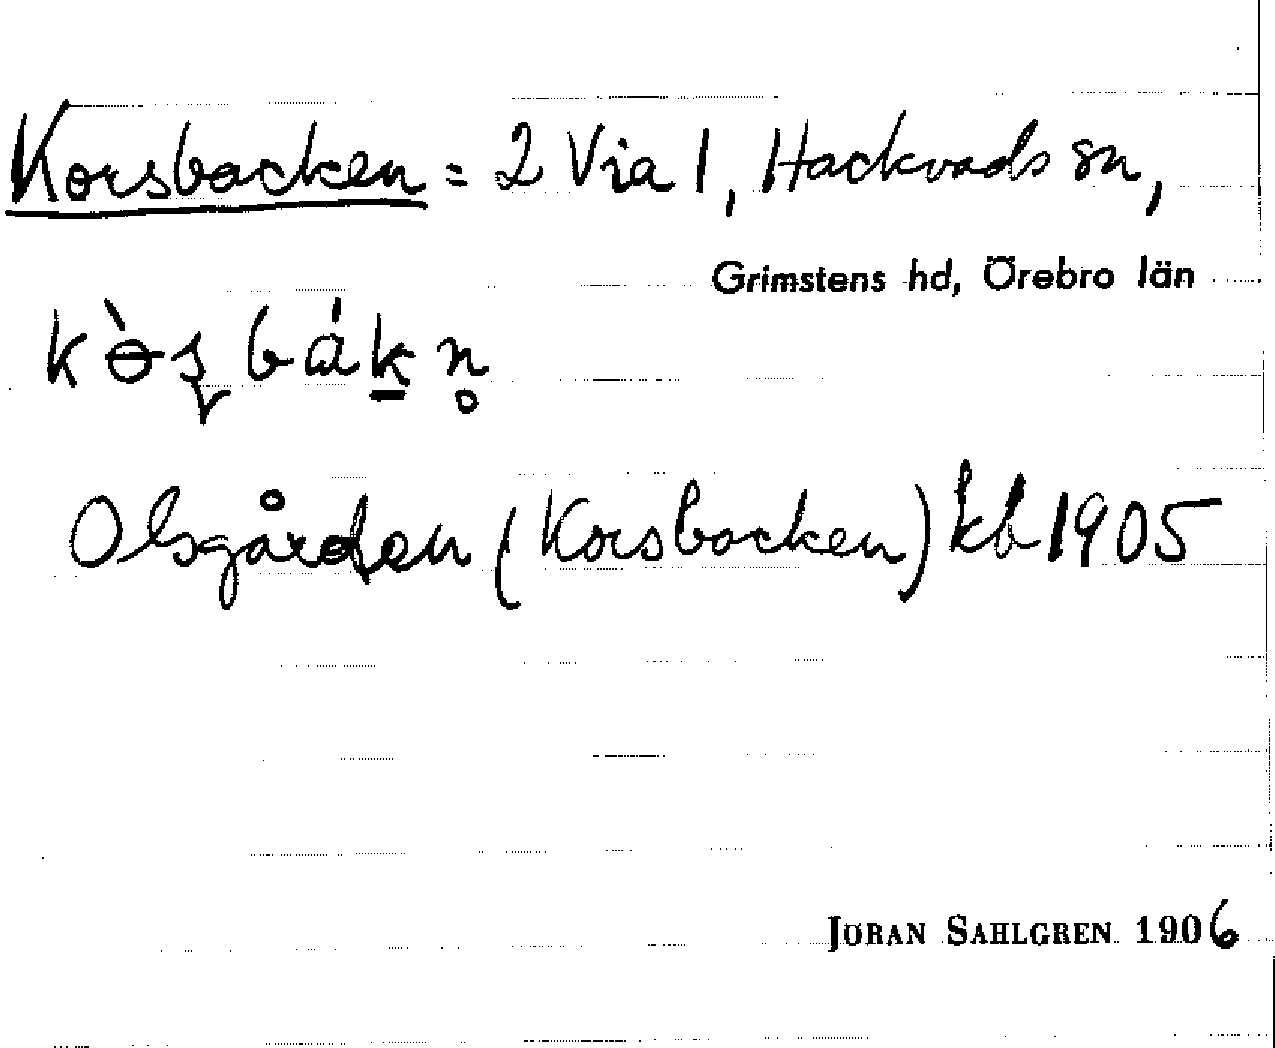 Korsbacken = 2 Via 1, Hackvads sn,
Grimstens hd, Örebro län
Olsgården (Korsbacken) kb 1905
JÖRAN SAHLGREN 1906